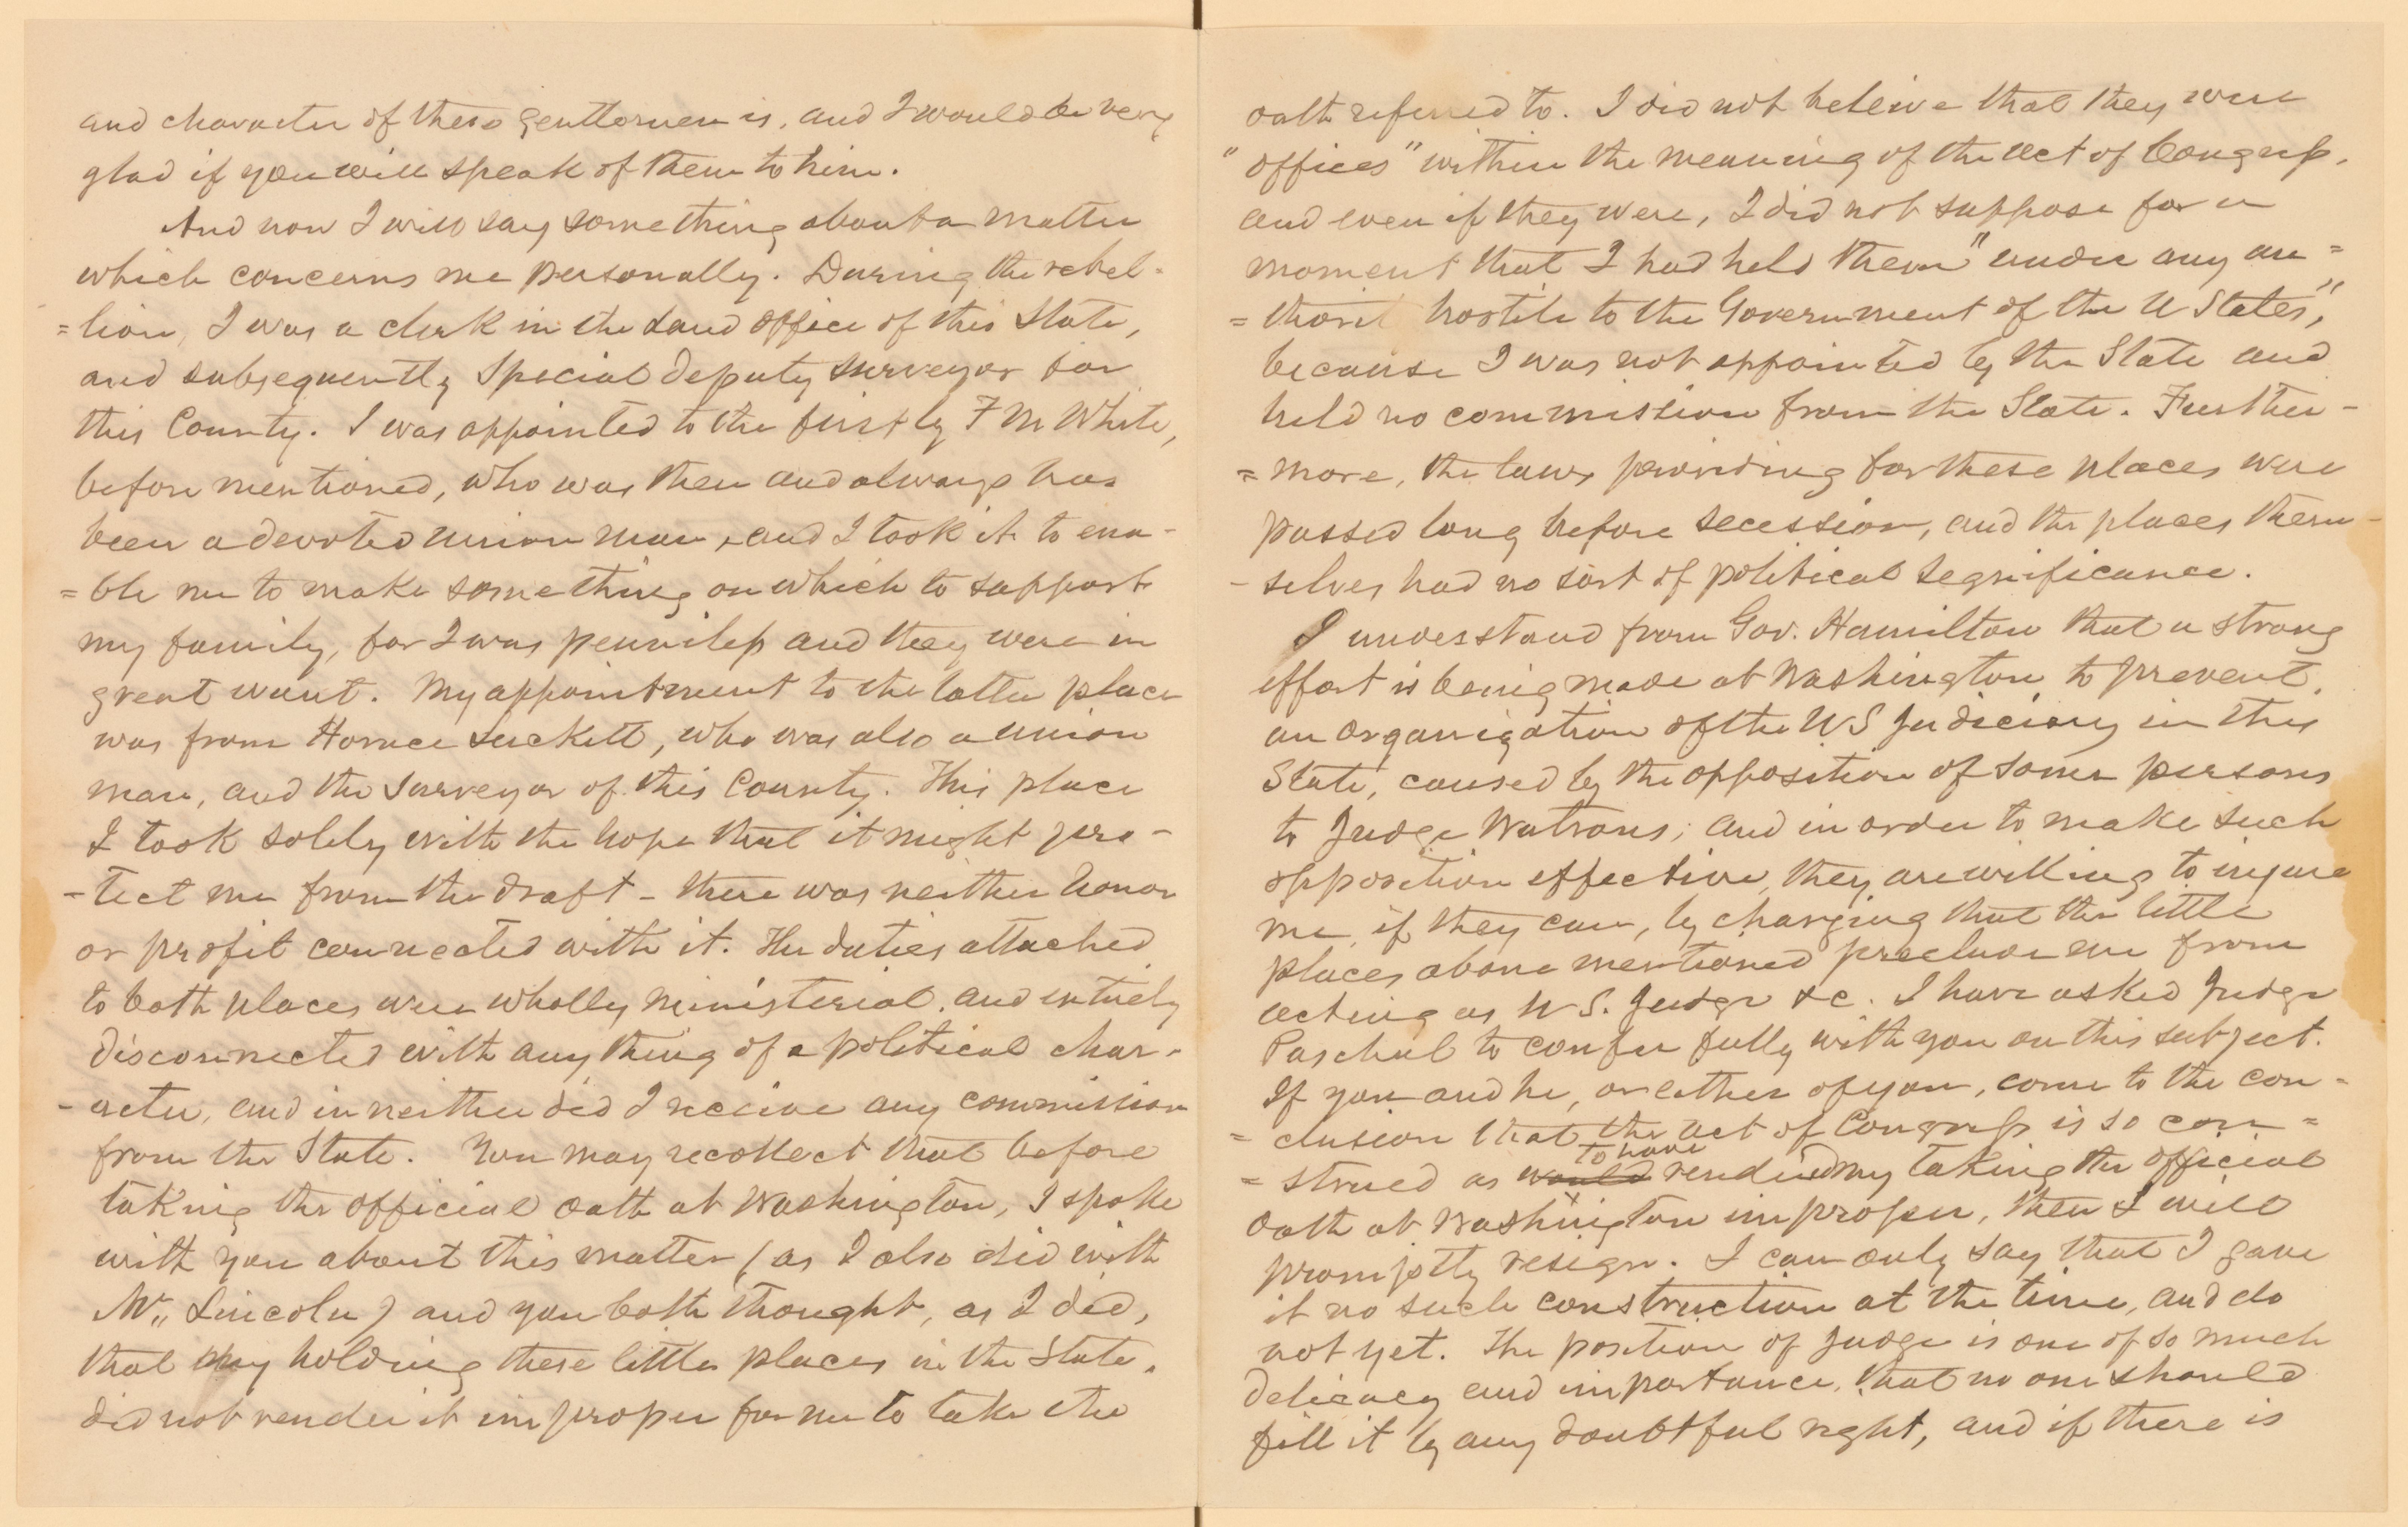 and character of these gentlemen is, and I would be very
glad if you will speak of them to him.
And now I will say something about a matter
which concerns me personally. During the rebel-
=lion, I was a clerk in the Land office of this State,
and subsequently Special deputy surveyor for
this County. I was appointed to the first by F M White,
before mentioned, who was then and always has
been a devoted union man, and I took it to ena-
=ble me to make something on which to support
my family, for I was penniless and they were in
great want. My appointment to the latter place
was from Horace Luckett, who was also a union
man, and the surveyor of this County. This place
I took solely with the hope that it might pro-
-tect me from the draft - there was neither honor
or profit connected with it. The duties attached
to both places were wholly ministerial, and entirely
disconnected with any thing of a political char-
-acter, and in neither did I receive any commission
from the State. You may recollect that before
taking the official oath at Washington, I spoke
with you about this matter (as I also did with
Mr. Lincoln) and you both thought, as I did,
that my holding these little places in the State,
did not render it improper for me to take the
oath referred to. I did not beleive that they were
"offices" within the meaning of the act of Congress,
and even if they were, I did not suppose for a
moment that I had held them "under any au=
=thorit hostile to the Government of the U States",
because I was not appointed by the State and
held no commission from the State. Further-
=more, the laws providing for these places were
passed long before secession, and the places them-
-selves had no sort of political segnificance.
I understand from Gov. Hamilton that a strong
effort is being made at Washington to prevent
an organization of the US Judiciary in this
State, caused by the opposition of some persons
to Judge Watrous; and in order to make such
opposition effective, they are willing to injure
me, if they can, by charging that the little
places above mentioned preclude me from
acting as U S. Judge &c. I have asked Judge
Paschal to confer fully with you on this subject.
If you and he, or either of you, come to the con-
=clusion that the act of Congress is so con=
=strued as would to have rendered my taking the official
oath at Washington improper, then I will
promptly resign. I can only say that I gave
it no such construction at the time, and do
not yet. The position of Judge is one of so much
delicacy and importance, that no one should
fill it by any doubtful right, and if there is